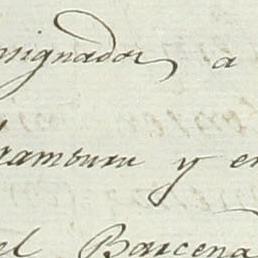 nsignados, a
rramburu y en
el Barcena